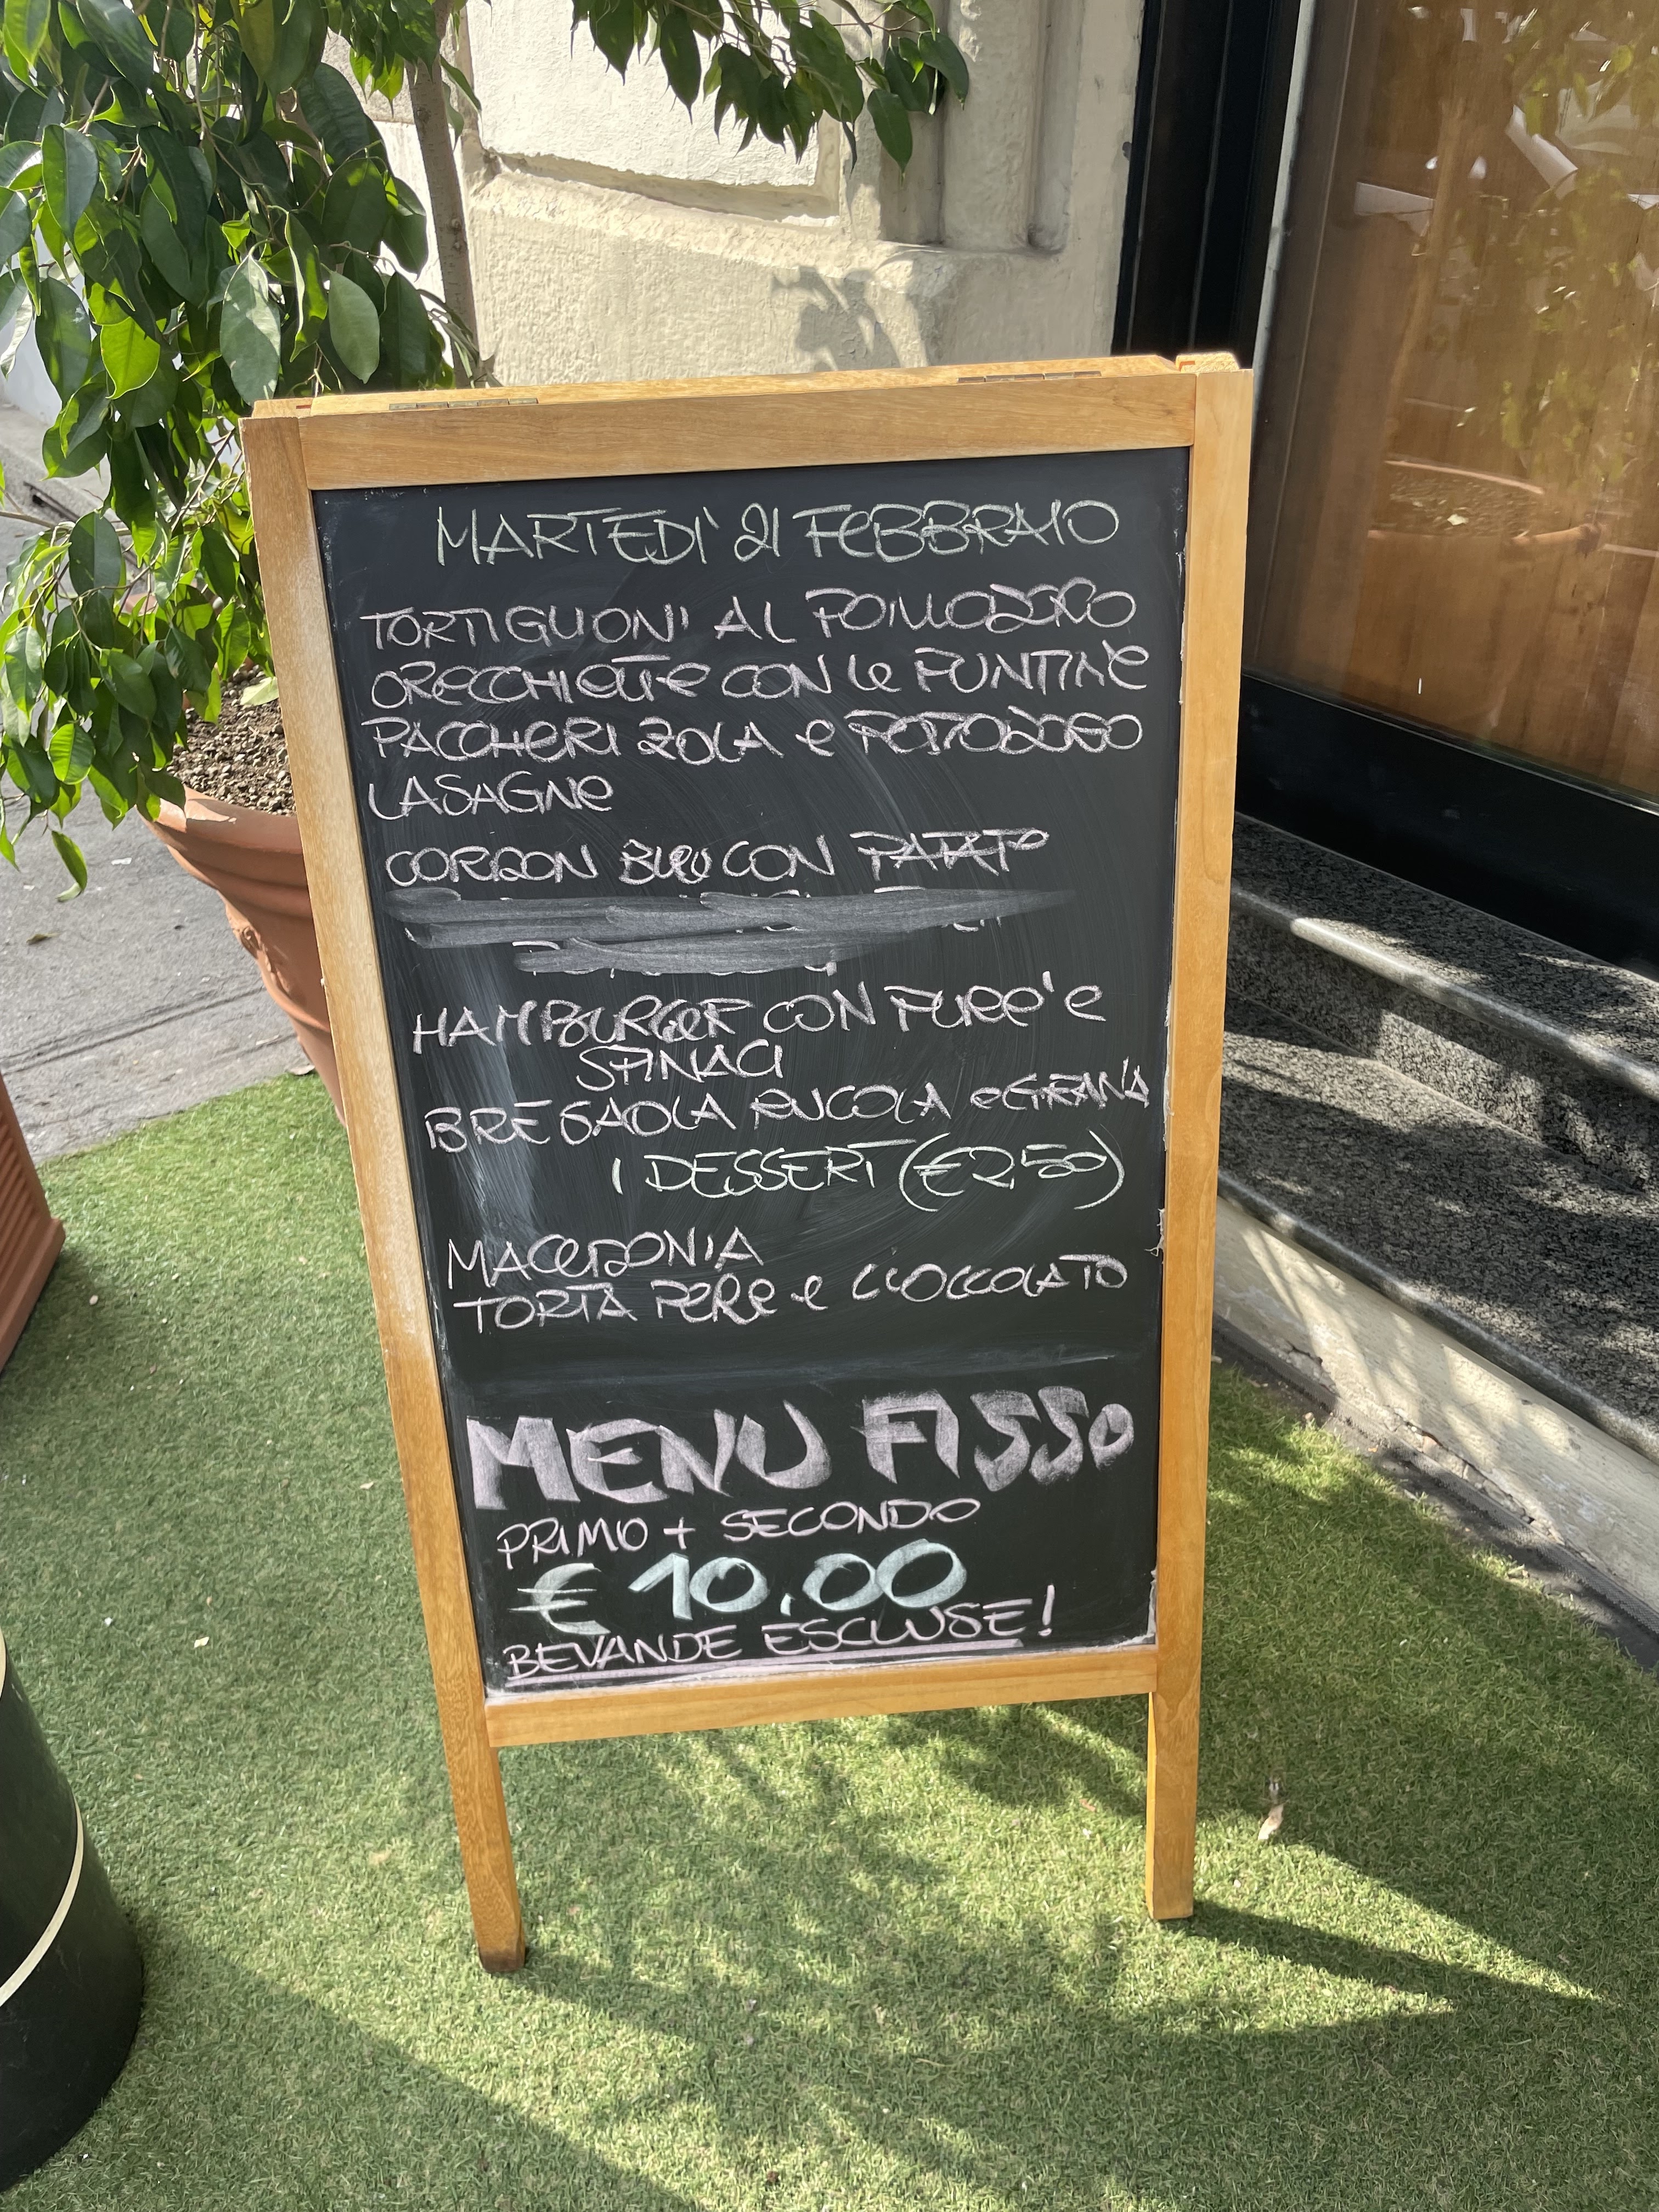 MARTEDI' 21 FEBBRAIO
TORTIGLIONI AL POMODORO
ORECCHIETTE CON LE PUNTINE
PACCHERI ZOLA E
LASAGNE
CORDON BLEU CON PATATE
HAMBURGER CON PURE' E
SPINACI
BRESAOLA RUCOLA E GRANA
I DESSERT (€2,50)
MACEDONIA
TORTA PERE E CIOCCOLATO
MENU FISSO
PRIMO + SECONDO
€ 10.00
BEVANDE ESCLUSE!